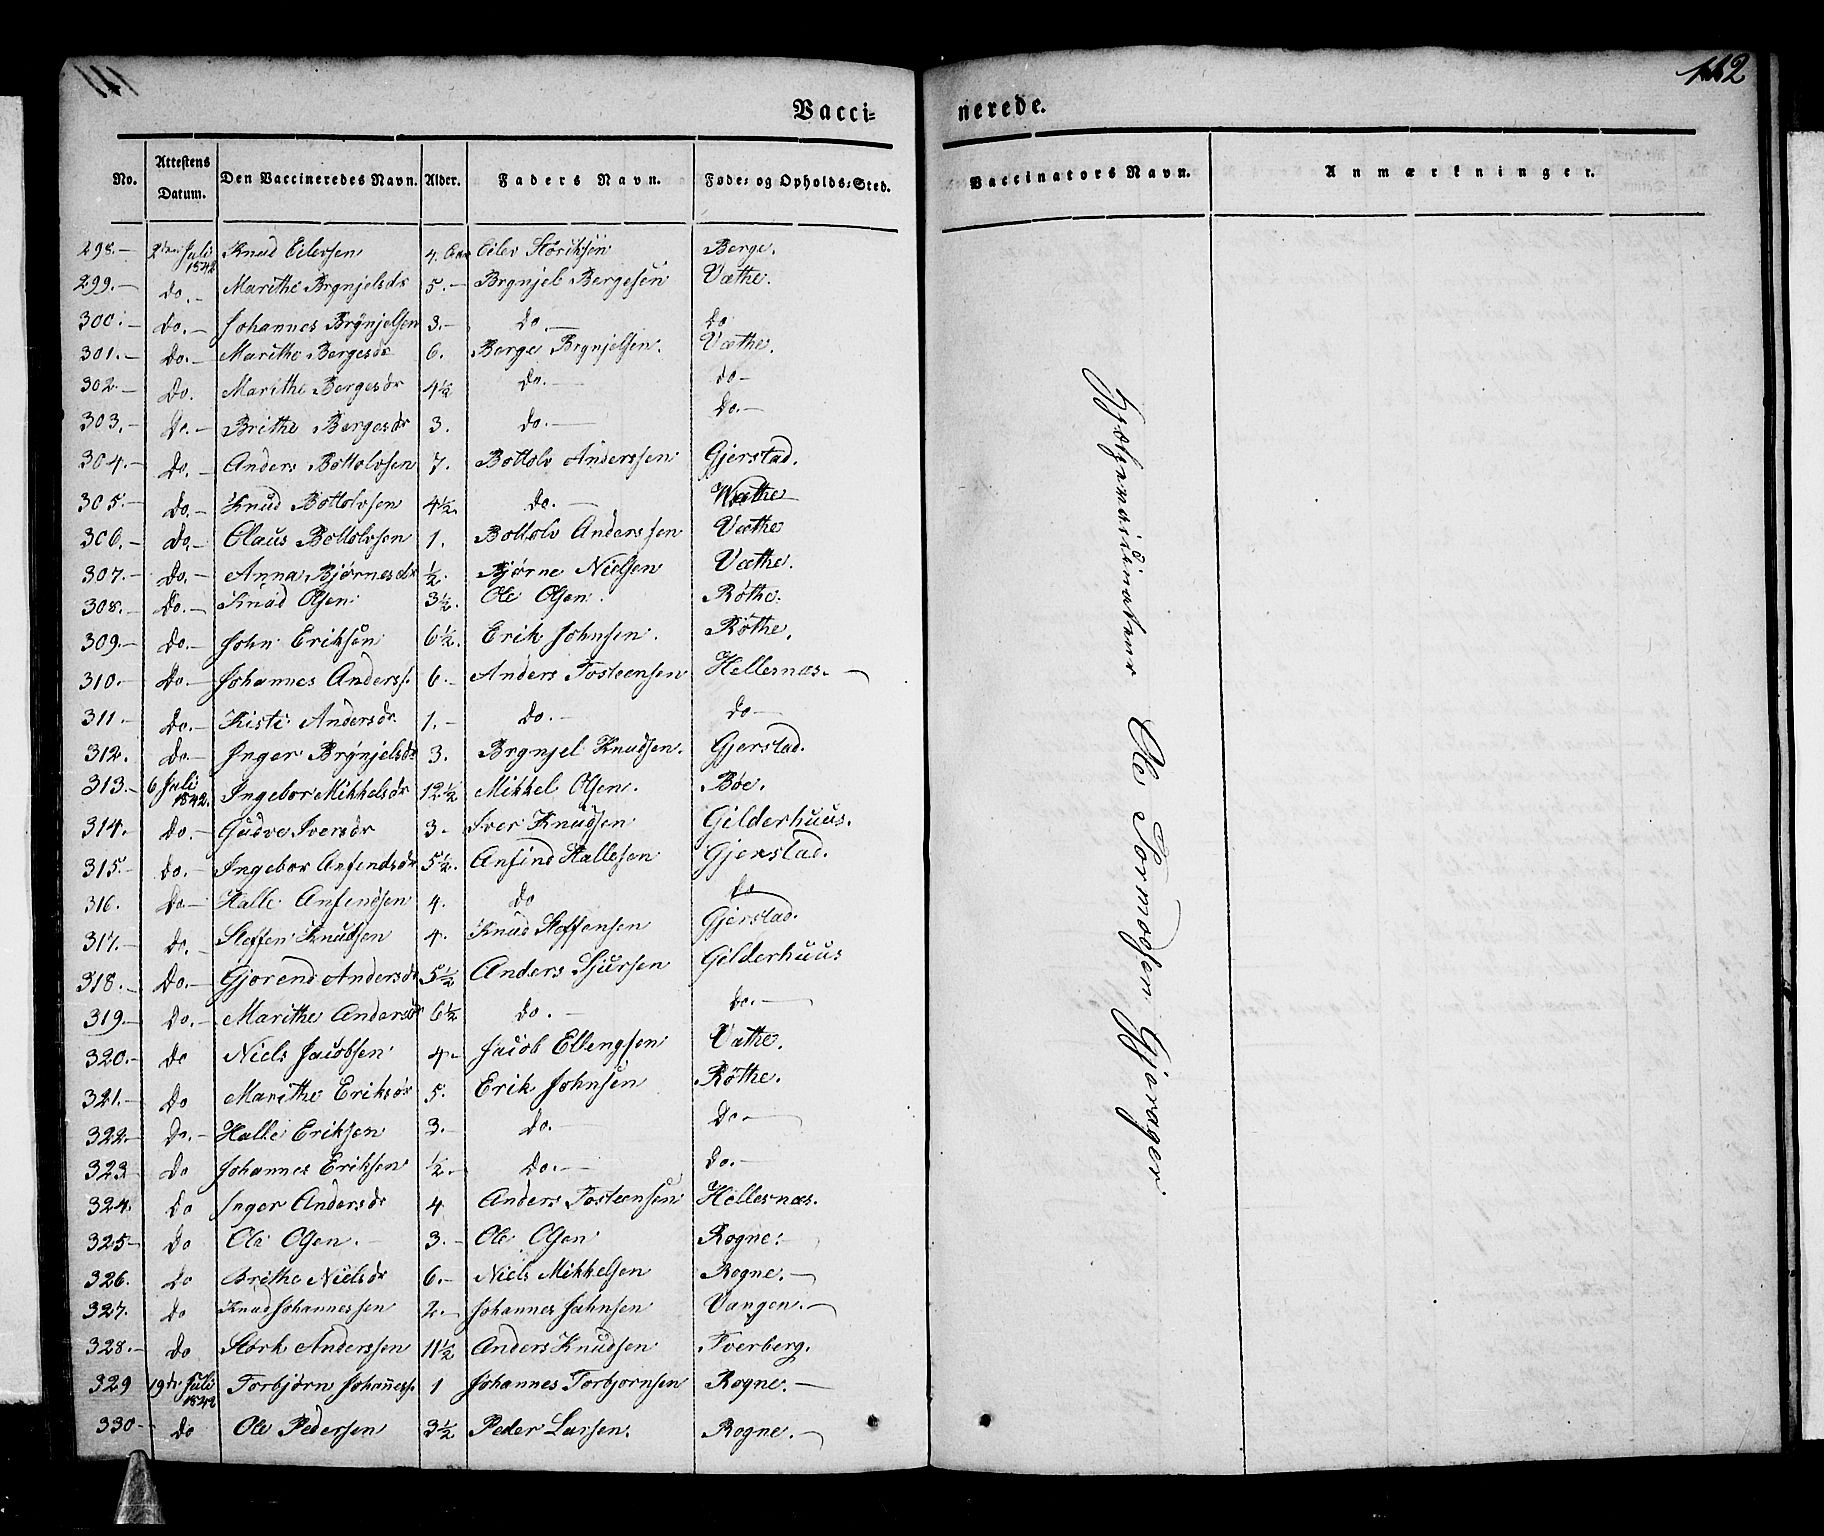 141
112
Vacci-
nerede.
No. Attestens Datum. Den Vaccineredes Navn. Alder. Faders Navn. Føde- og Opholds-Sted. Vaccinators Navn. Anmærkninger.
298.- 2den Juli 1842 Knud Eilevsen 4. Eilev Störiksen Berge.
299.- do.- Marithe Brynjelsdr 5.- Brynjel Bergesen Væthe.
300.- do.- Johannes Brÿnjelsen 3.- do.- do
301.- do.- Marithe Bergesdr 6. Berge Brynjelsen. Væthe.
302 do. Marithe Bergesdr 4½ do.- do-
303.- do.- Brithe Bergesdr 3. do.- do.-
304.- do.- Anders Bottolvsen 7. Bottolv Anderssen Gjerstad.
305.- do.- Knud Bottolvsen 4½. do.- Wæthe
306.- do.- Claus Bottolvsen 1. Bottolv Anderssen Væthe
307.- do.- Anna Bjørnesdr ½. Bjørne Nielsen Væthe.
308.- do.- Knud Olsen 3½. Ole Olsen. Röthe.
309.- do.- John Eriksen 6½. Erik Johnsen. Röthe.
310.- do- Johannes Anderss. 6.- Anders Tosteensen Hellesnæs.-
311.- do.- Kisti Andersdr 1.- do.- do-
312. do- Inger Brÿnjelsdr 3. Brynjel Knudsen. Gjerstad.
313.- 6 Juli 1842. Ingebor Mikkelsdr 12½ Mikkel Olsen. Bøe.
314. do.- Gudve Iversdr 3. Iver Knudsen Gilderhuus.
315.- do.- Ingebor Anfendsdr 5½. Anfind Hallesen Gjerstad.
316. do- Halle Anfendsen 4. do do
317.- do.- Steffen Knudsen 4. Knud Steffensen Gjerstad.
318.- do.- Gjørend Andersdr 5½ Anders Sjursen Gilderhuus
319.- do.- Marithe Andersdr 6½ do.- do.-
320.- do Niels Jacobsen 4.- Jacob Ellengsen Væthe.
321.- do Marithe Eriksdr 5. Erik Johnsen Röthe.
322.- do.- Halle Eriksen 3.- do.- do-
323 do Johannes Eriksen ½.- do.- do.-
324. do Inger Andersdr 4 Anders Tosteensen Hellesnæs.
325- do Ole Olsen.- 3.- Ole Olsen Rogne.-
326. do Brithe Nielsdr 6.- Niels Mikkelsen Rogne.-
327. do Knud Johannessen 2.- Johannes Johnsen Vangen.-
328.- do Störk Anderssen 11½ Anders Knudsen Tverberg.
329 19de Juli 1842 Torbjørn Johanness. 1 Johannes Torbjornsen Rogne.-
330- do Ole Pedersen 3½ Peder Larsen. Rogne.-
Hjelpevaccinateur Ole Tormodsen Gjerager